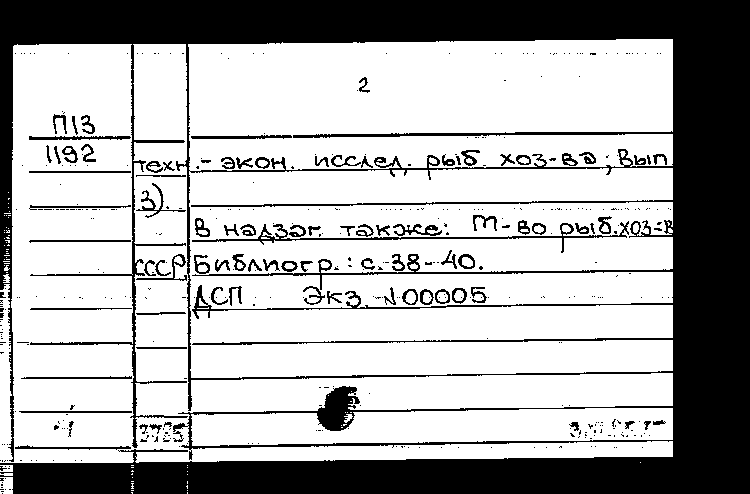 2
П13
1192
техн.-экон. исслед. рыб. хоз-ва; Вып
3).
В надзаг. также: М-во рыб.хоз-в
СССР. Библиогр.: с. 38-40.
ДСП. Экз. №00005
3785